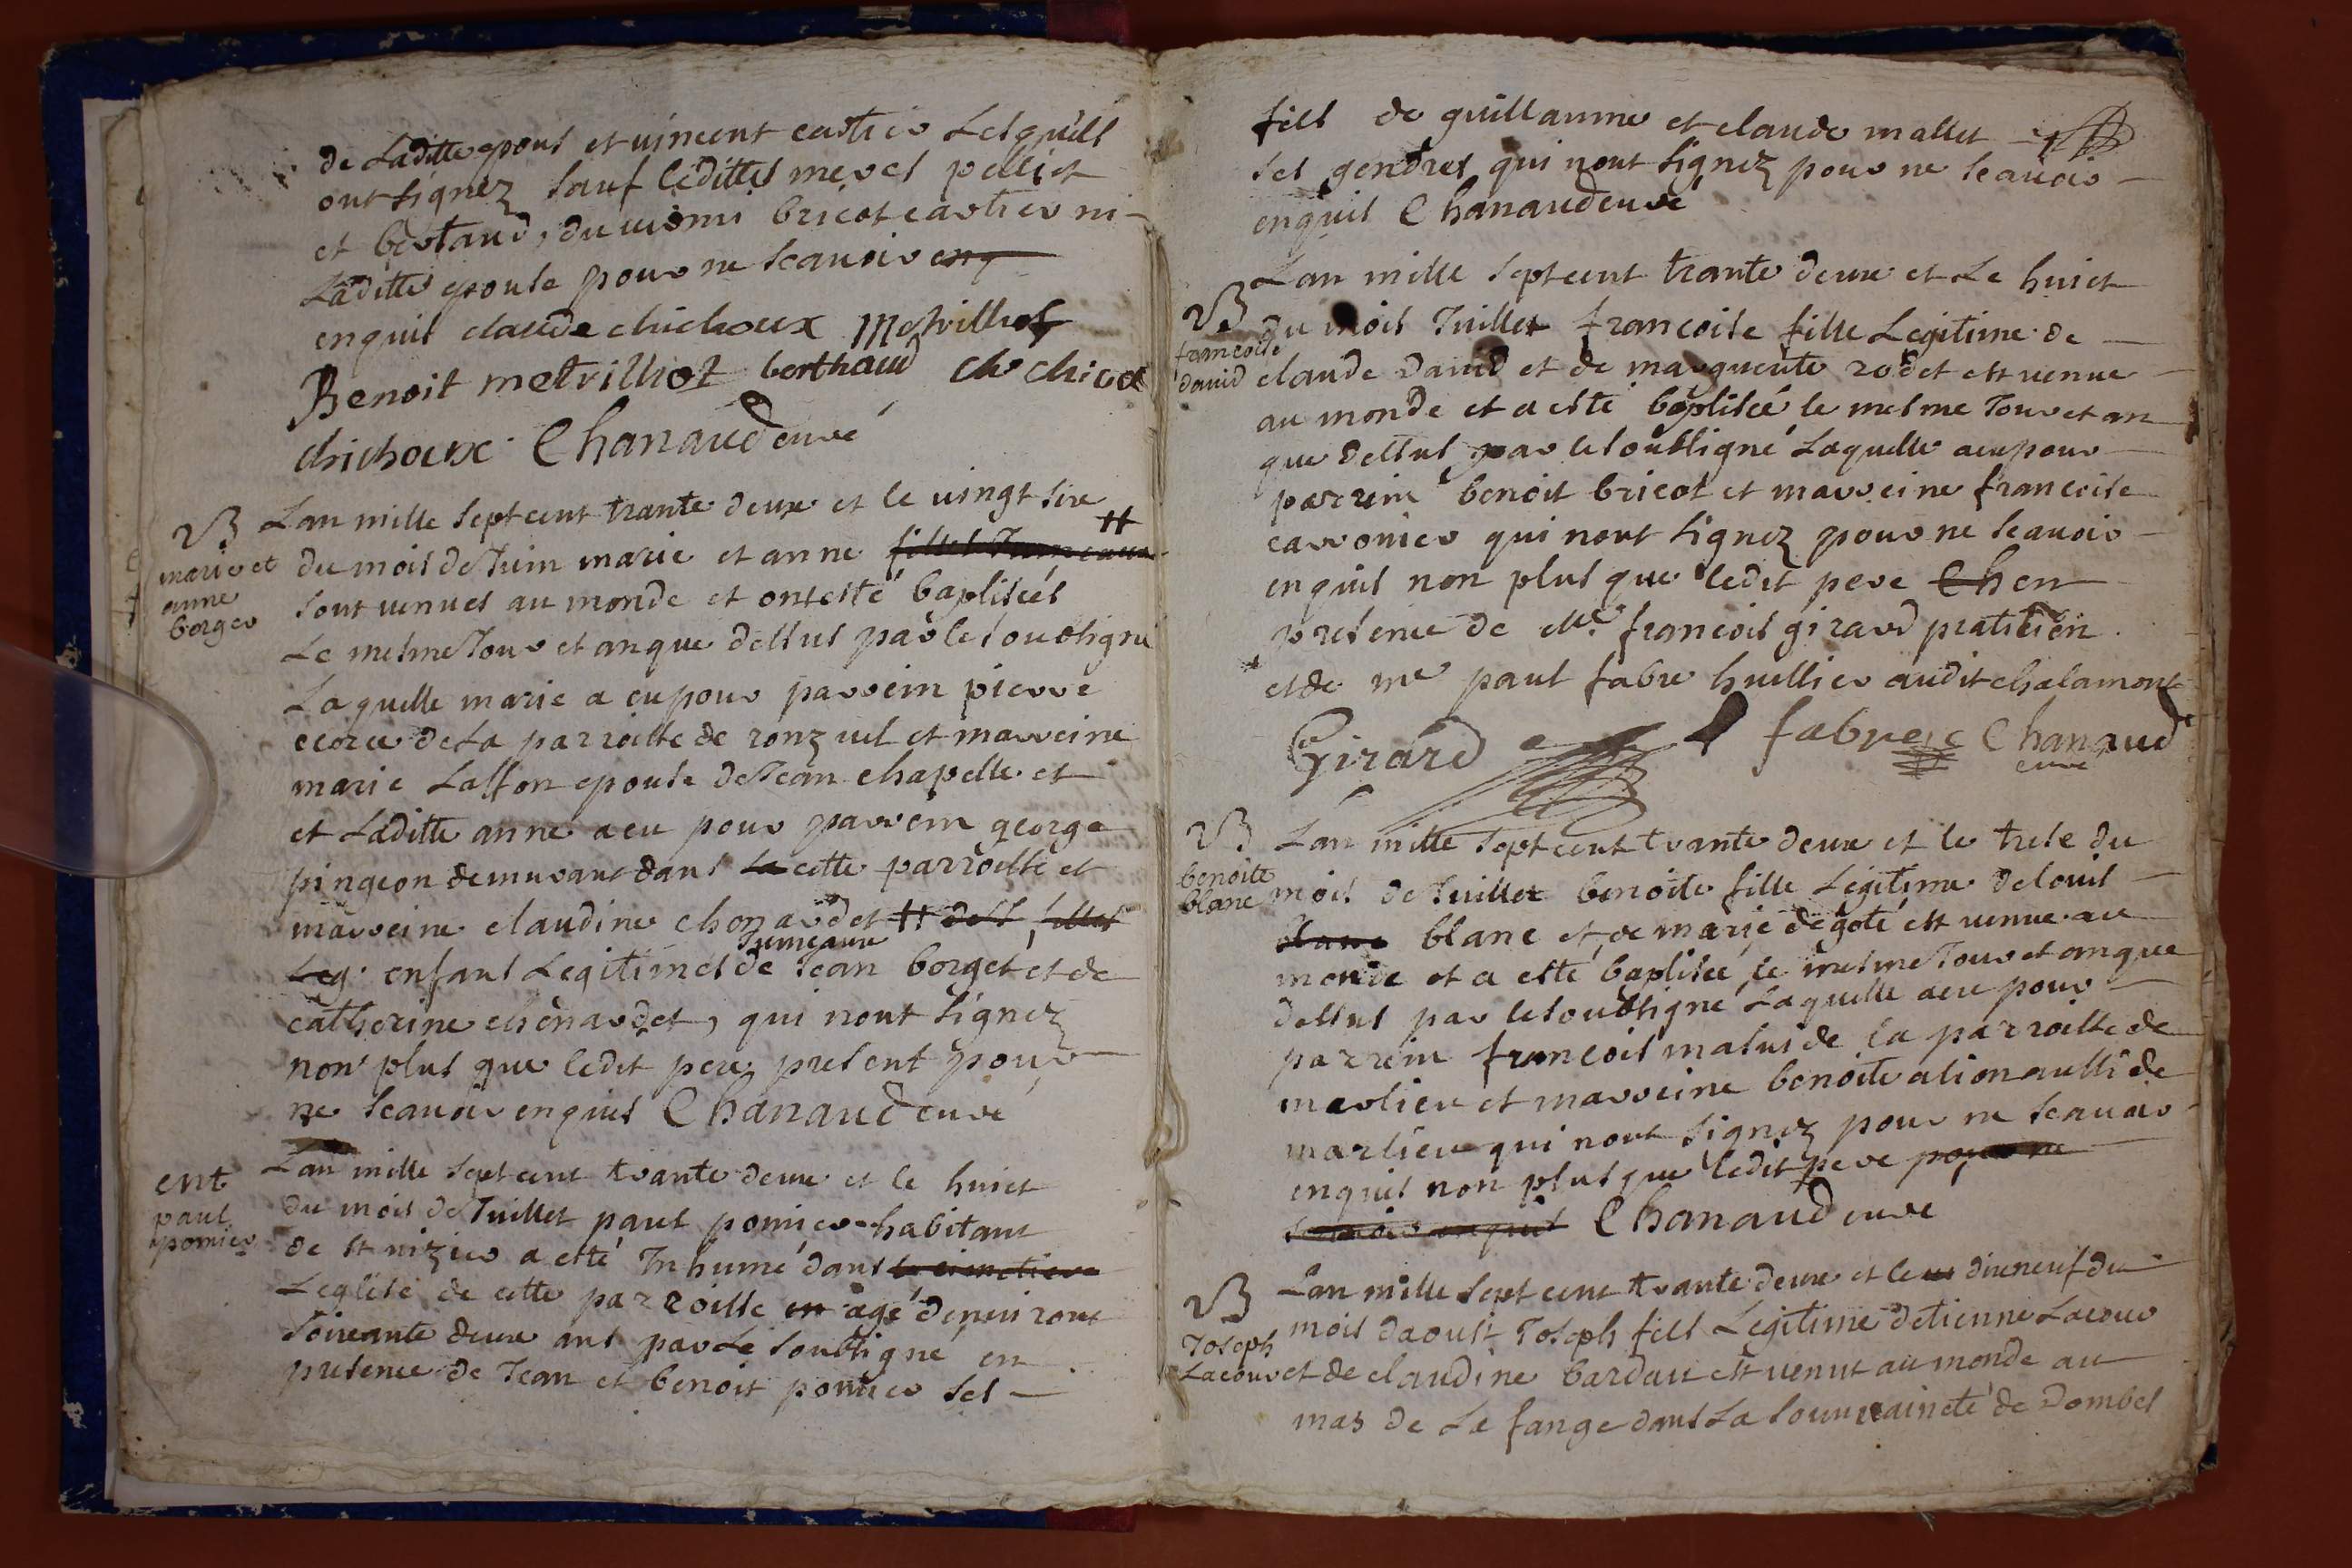 de Laditte epous et vincent cartier Lesquels
ont signez sauf leditte meres pelliet
et bertaud, du vismi bricot cartier ni
Laditte epouse pour ne scavoir enq
enquis claude chichoux Metrilliot
Benoit metrilliot berthaud
chichoux Chanaud curé
B Lan mille sept cent trante deux et le vingt six
marie et anne borget
du mois de Juin marie et anne filles Jumeaux
sont venues au monde et ont esté baptisées
Le mesme Jour et an que dessus par le soubsigné
Laquelle marie a eu pour parrein pierre
de La parroisse de ronzuel et marreine
marie Lasson epouse de Jean chapelle et
et Laditte anne a eu pour parrein george
pingeon demurant dans la cette parroisse et
marreine claudine chonardet # dess filles
Leg. enfans Legitimes Jumeaux de Jean borget et de
catherine chenardet, qui nont signez
non plus que ledit pere present pour
ne scavoir enquis Chanaud curé
ent
paul pomier
Lan mille sept cent trante deux et le huict
du mois de Juillet paul pomier habitant
de st nizier a esté Inhumé dans le cimetiere
Leglise de cette parroisse en agé denviront
soixante deux ans par Le soubsigné en
presence de Jean et benoit pomier ses
fils de guillaume et claude mallet
ses gendres qui nont signez pour ne scavoir
enquis Chanaud curé
B
francoise david
Lan mille sept cent trante deux et Le huict
du mois Juillet francoise fille Legitime de
claude David et de marguerite rodet est venue
au monde et a esté baptisée le mesme Jour et an
que dessus par le soubsigné Laquelle a eu pour
parrein benoit bricot et marreine francoise
carronier qui nont signez pour ne scavoir
enquis non plus que ledit pere Ch en
presence de Me francois girard praticien
et de me paul fabre huissier audit chalamont
Girard fabre Chanaud
curé
B
benoite blanc
Lan mille sept cent trante deux et le trese du
mois de Juillet benoite fille Legitime de louis
blanc blanc et de marie degoté est venue au
monde et a esté baptisée le mesme Jour et an que
dessus par le soubsigné Laquelle a eu pour
parrein francois malus de la parroisse de
marlieu et marreine benoite alion aussi de
marlieu qui nont signez pour ne scavoir
enquis non plus que ledit pere pour ne
scavoir enquis Chanaud curé
B
Joseph Lacour
Lan mille sept cent trante deux et le dixneuf du
mois daoust Joseph fils Legitime detienne Lacour
et de claudine bardau est venut au monde au
mas de La fange dans La souveraineté de Dombes